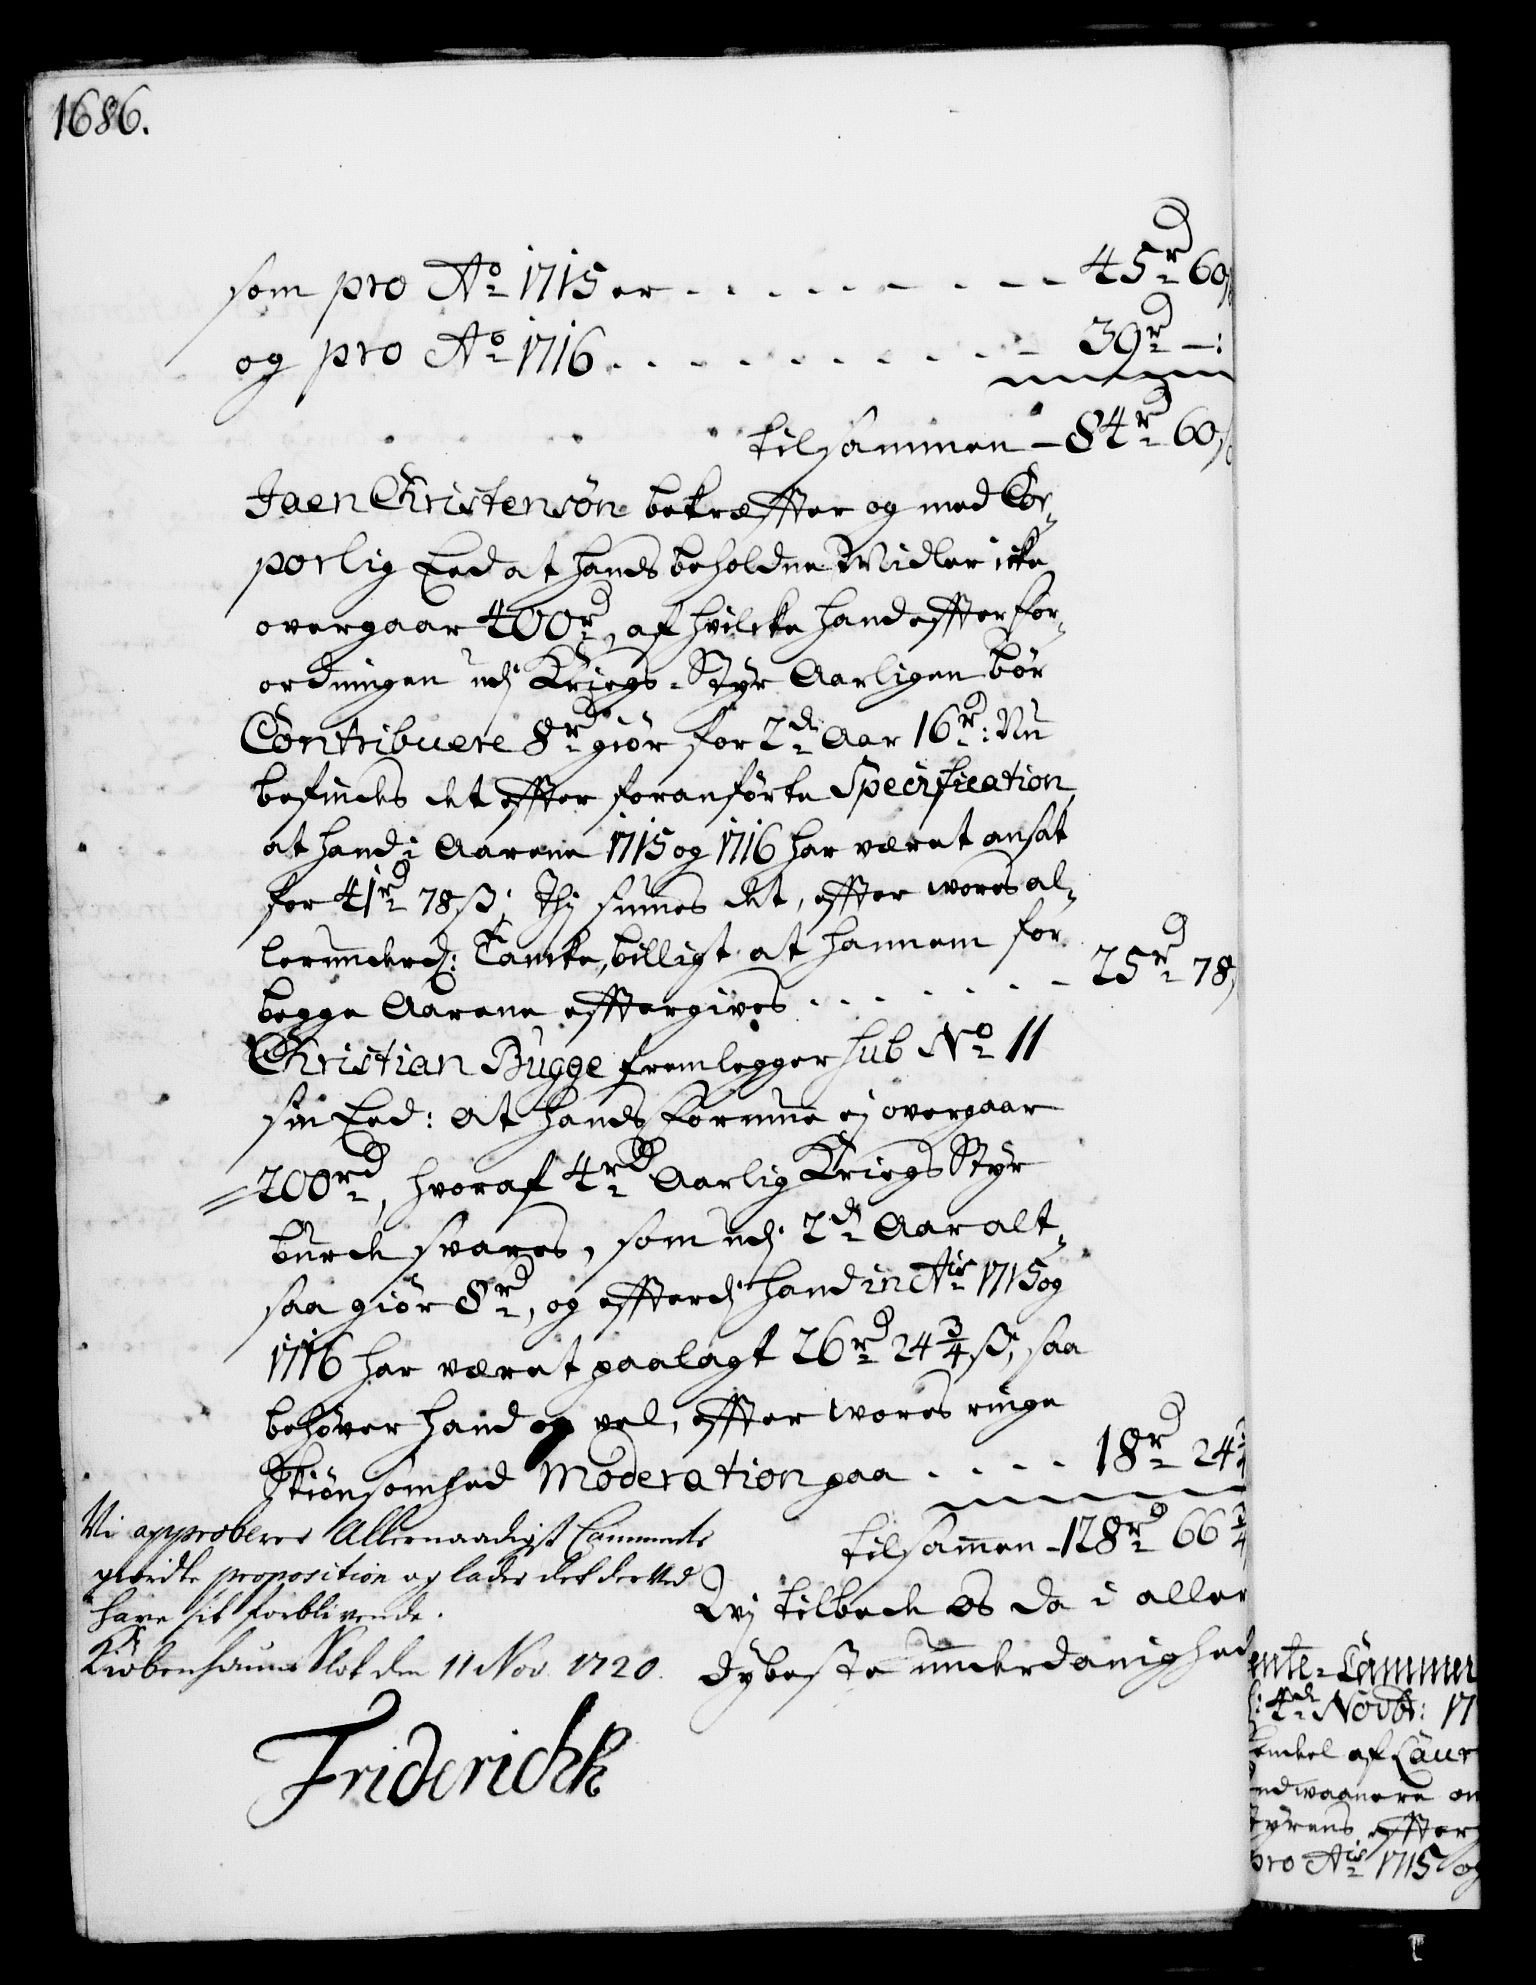 1686.
som pro Ao 1715 er - - - - - - - - 45rd 60ß
og pro Ao 1716 - - - - - - - - 39rd -:
tilsammen - 84rd 60ß
Jaen Christensøn bekræffter og med Cor-
porlig Eed at hands beholdne Midler icke
overgaar 400rd, af hvilcke hand effter for-
ordningen udj Kriegs-Styr Aarligen bør
Contribuere 8rd giør for 2de Aar 16rd: Nu
befindes det effter foranførte Specification,
at hand i Aarene 1715 og 1716 har været ansat
for 41rd 78ß; Thj siunes det, effter vores al-
lerunderd: Tancke, billigt at hannem for
begge Aarene efftergives - - - - - - - 25rd 78
Christian Bugge fremlegger sub No 11
sin Eed: At hands Formue ej overgaar
200rd, hvoraf 4rd Aarlig Kriegs Styr
burde svares, som udj 2de Aar alt-
saa giør 8rd, og effterdj hand in Ais 1715 og
1716 har været paalagt 26rd 24 3/4 ß, saa
behøver hand og vel, effter vores ringe
Skiønsomhed Moderation paa - - - - 18rd 24 3/4
tilsammen - 128rd 66 3/4
Wj tilbede os da i aller
dybeste underdanighed
Vi approberer Allernaadigst Cammerets
giordte proposition og lader det der ved
have sit forblivende.
Kiøbenhauns Slot den 11 Nov. 1720.
Friderich R
ente-Cammer
d: 4de Novbr: 17
af Laur
indvaanere
tyrens effterg
pro Ais 1715 og